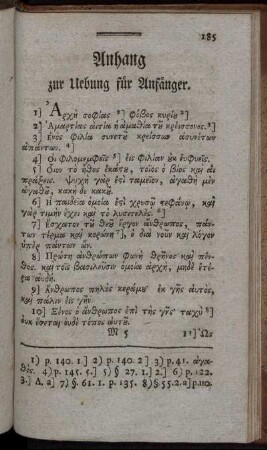 185
Anhang
zur Uebung für Anfänger.
1] Ἀρχὴ σοφίας ¹] φόβος κυρίου ²]
2] Ἁμαρτίας αἰτία ἡ ἀμαθία τοῦ κρείσσονος. ³]
3] Ἑνὸς φιλία συνετοῦ κρείσσων ἀσυνέτων
ἁπάντων. ⁴]
4] Οἱ φιλομεμφεῖς ⁵] εἰς φιλίαν οὐκ εὐφυεῖς.
5] Οἷον τὸ ἦθος ἑκάστου, τοῖος ὁ βίος καὶ αἱ
πράξεις. Ψυχὴ γὰρ ἐστὶ ταμεῖον, ἀγαθὴ μὲν
ἀγαθοῦ, κακὴ δὲ κακοῦ.
6] Ἡ παιδεία ὁμοία ἐστὶ χρυσῷ στεφάνῳ, καὶ
γὰρ τιμὴν ἔχει καὶ τὸ λυσιτελές. ⁶]
7] Ἔσχατον τοῦ θεοῦ ἔργον ἄνθρωπος, πάν-
των τέρμα καὶ κορώνη ⁷] ὁ διὰ νοῦν καὶ λόγον
ὑπὲρ πάντων ὤν.
8] Πρώτη ἀνθρώπων φωνὴ θρῆνος καὶ πέν-
θος, καὶ τοῖς βασιλεῦσιν ὁμοία ἀρχή, μηδὲ ἑτέ-
9] Ἄνθρωπος πηλὸς κεράμου ἐκ γῆς αὐτὸς,
καὶ πάλιν εἰς γῆν.
10] Ξένος ὁ ἄνθρωπος ἐπὶ τῆς γῆς ταχὺ ⁸]
οὐκ ἔσεται οὐδὲ τόπος αὐτοῦ.
M 5 11] Ὡς
1) p. 140. 1.] 2) p. 140. 2] 3) p. 41. ἀγα-
θός. 4) p. 145. 5.] 5) §. 27. 1.] 2.] 6) p. 122.
3.] Δ. a] 7) §. 61. 1. p. 135. 8) §. 55. 2. a] p. 110.